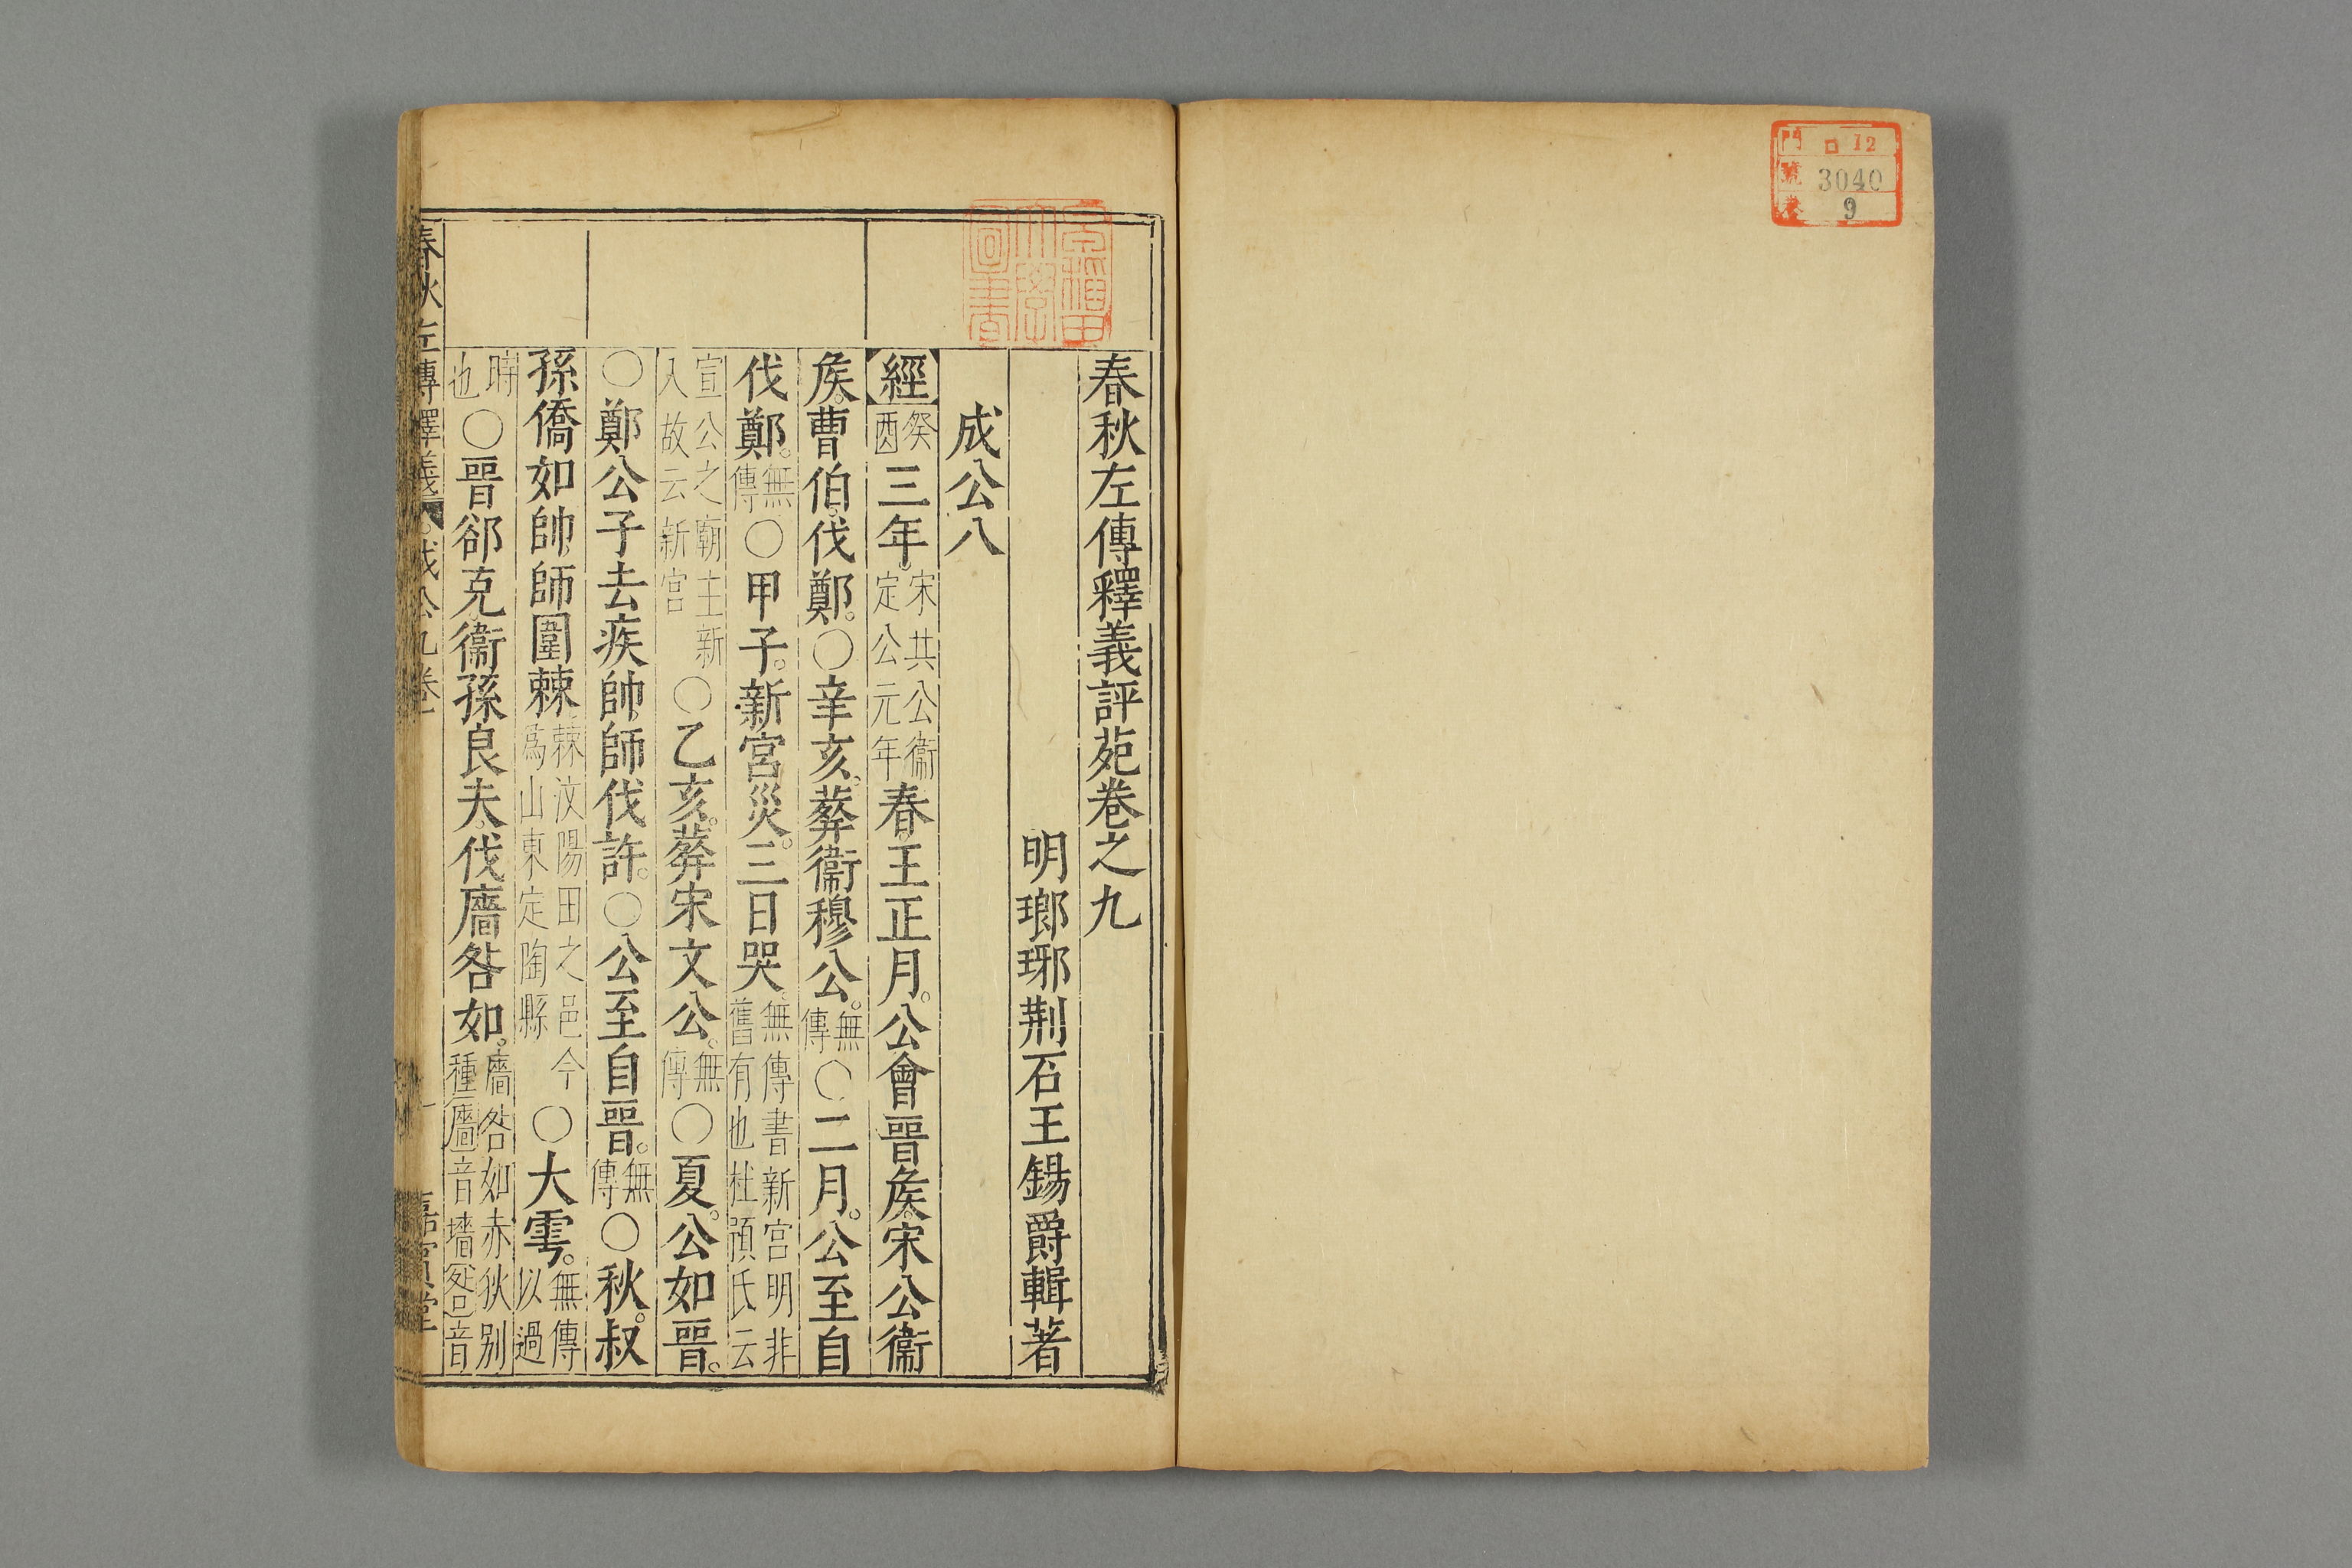 門 ロ 12
號 3040
卷 9
早稻田大學圖書
春秋左傳釋義評苑卷之九
明瑯琊荆石王錫爵輯著
成公八
經癸酉三年。宋共公衞定公元年春王正月。公會晉矦宋公衞
矦。曹伯。伐鄭。○辛亥。葬衞穆公。無傳○二月。公至自
伐鄭。無傳○甲子。新宮災。三日哭。無傳書新宮明非舊有也杜預氏云
宣公之廟主新入故云新宮○乙亥。葬宋文公。無傳○夏。公如晉。
○鄭公子去疾帥師伐許。○公至自晉。無傳○秋。叔
孫僑如帥師圍棘棘汶陽田之邑今爲山東定陶縣○大雩。無傳以過
時也○晉郤克衞孫良夫伐廧咎如。廧咎如赤狄别種廧音墻咎音
春秋左傳釋義 成公九卷 一 嘉賓堂